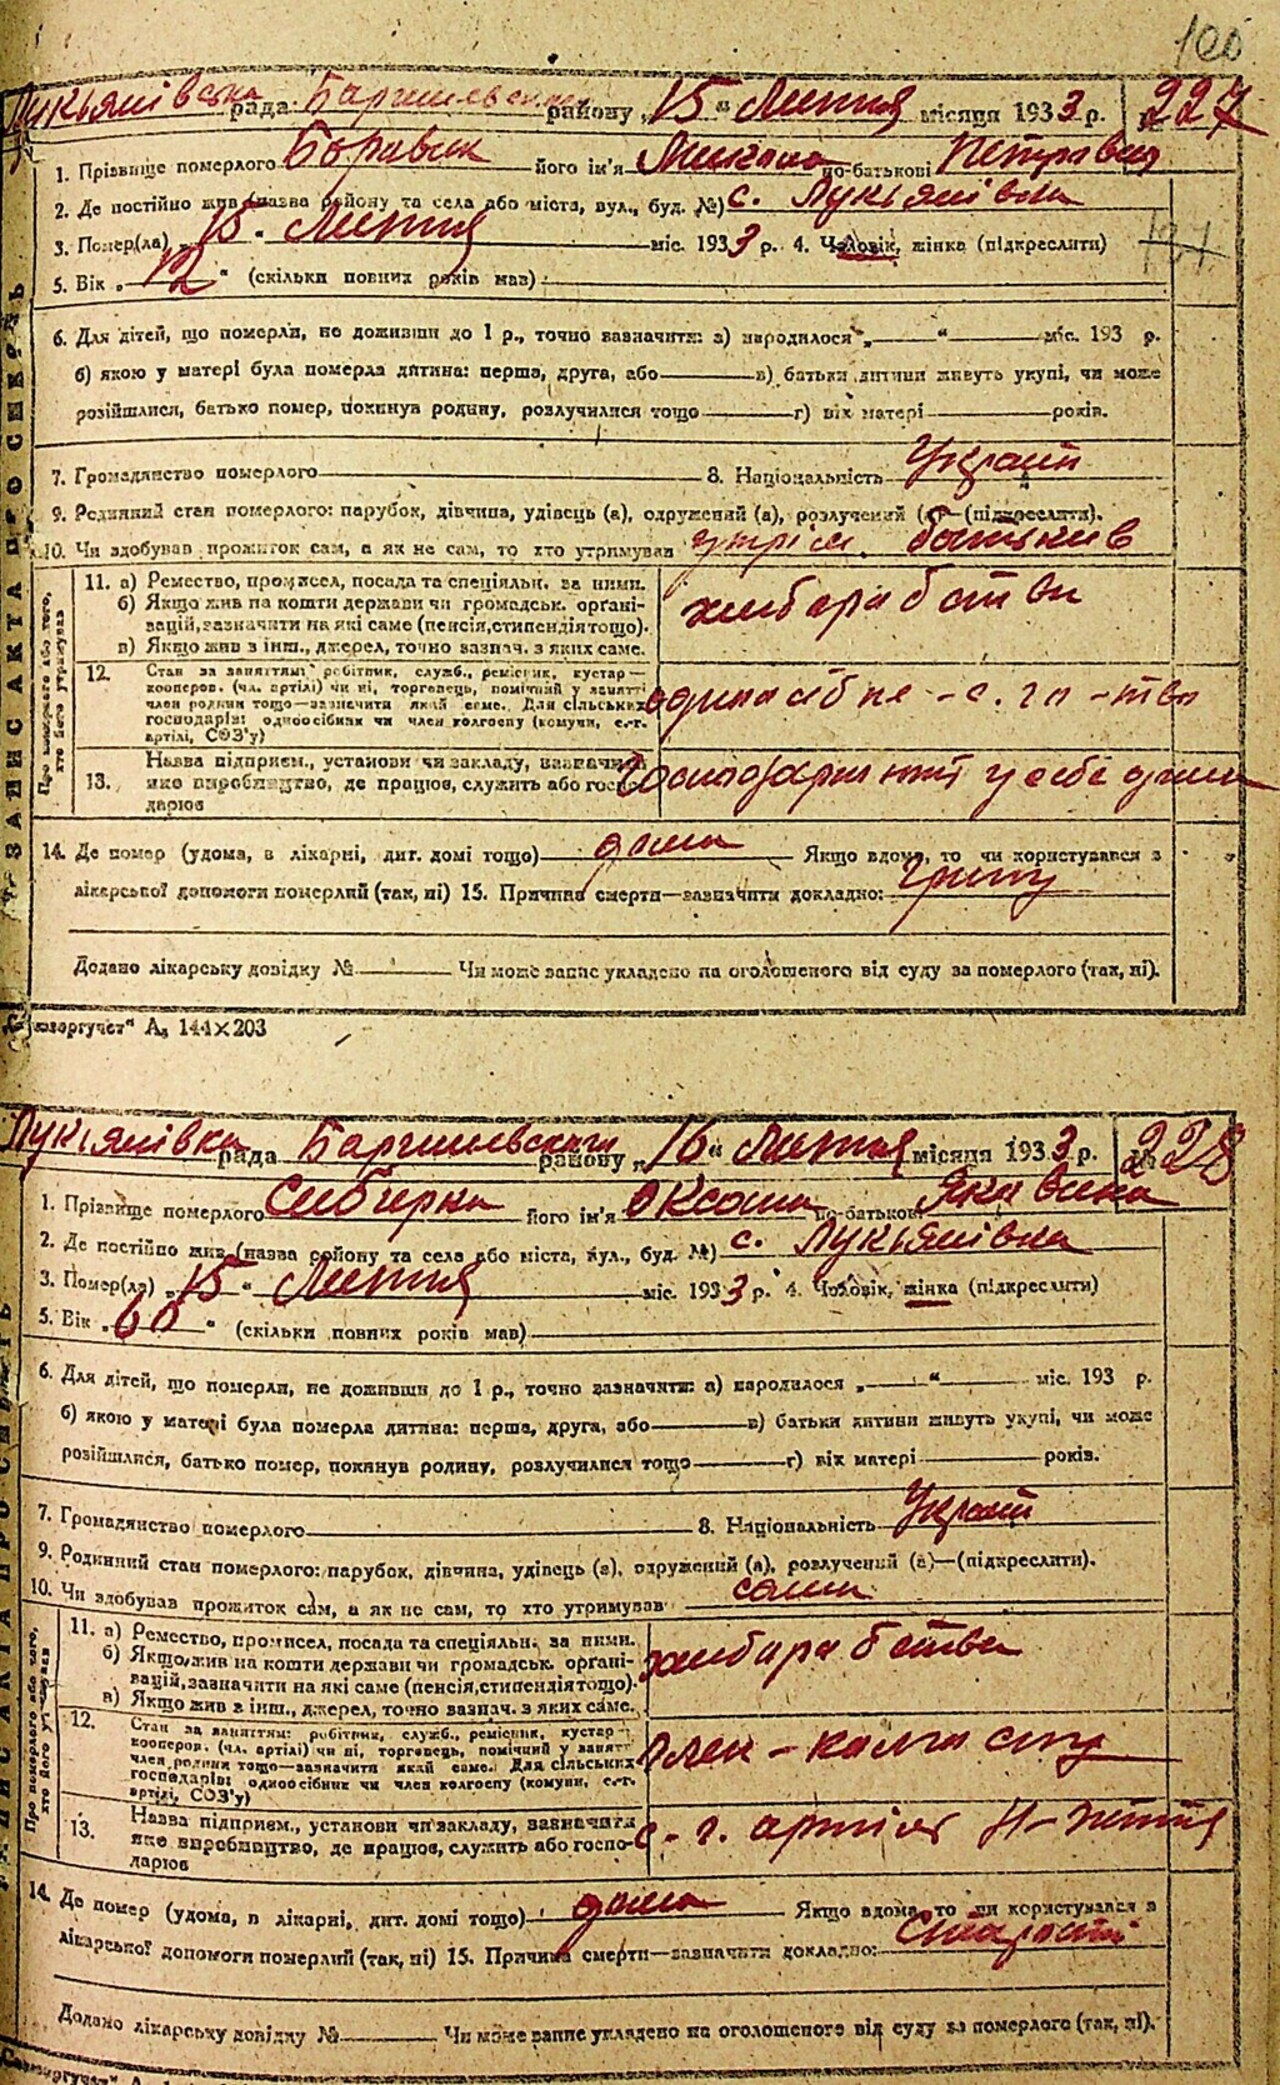 100
Лукьянівська рада Баришевського району „15“ Липня місяця 1933 р. № 227
1. Прізвище померлого Боровик його ім'я Микола по-батькові Петрович
2. Де постійно жив (назва району та села або міста, вул., буд. №) с. Лукьянівка
3. Помер(ла) „15“ Липня міс. 1933 р. 4. Чоловік, жінка (підкреслити)
5. Вік „12“ (скільки повних років мав)
6. Для дітей, що померли, не доживши до 1 р., точно зазначити: а) народилося „ “ міс. 193 р.
б) якою у матері була померла дитина: перша, друга, або в) батьки дитини живуть укупі, чи може
розійшлися, батько помер, покинув родину, розлучилися тощо г) вік матері років.
7. Громадянство померлого 8. Національність Украін
9. Родинний стан померлого: парубок, дівчина, удівець (а), одружений (а), розлучений (а)—(підкреслити).
10. Чи здобував прожиток сам, а як не сам, то хто утримував утрім. батьків
ЗАПИС АКТА ПРО СМЕРТЬ
Про померлого або того, хто його утримував
11. а) Ремество, промисел, посада та спеціяльн. за ними.
б) Якщо жив на кошти держави чи громадськ. органі-
зацій, зазначити на які саме (пенсія, стипендія тощо).
в) Якщо жив з інш., джерел, точно зазнач. з яких саме.
хлібаробство
12. Стан за заняттям: робітник, служб., ремісник, кустар—
кооперов. (чл. артілі) чи ні, торговець, помічний у занятті
член родини тощо—зазначити який саме. Для сільських
господарів: одноосібник чи член колгоспу (комуни, с.-г.
артілі, СОЗ'у)
одноосібне - с. го - тво
13. Назва підприєм., установи чи закладу, зазначити
яке виробництво, де працює, служить або госпо-
дарює
Господарив у себе дома
14. Де помер (удома, в лікарні, дит. домі тощо) дома Якщо вдома, то чи користувався з
лікарської допомоги померлий (так, ні) 15. Причина смерти—зазначити докладно: Грипу
Додано лікарську довідку № Чи може запис укладено на оголошеного від суду за померлого (так, ні).
„Союзоргучет“ А₅ 144×203
Лукьянівка рада Баришевського району „16“ Липня місяця 1933 р. № 228
1. Прізвище померлого Сибирка його ім'я Оксана по-батькові Яковлівна
2. Де постійно жив (назва району та села або міста, вул., буд. №) с. Лукьянівка
3. Помер(ла) „15“ Липня міс. 1933 р. 4. Чоловік, жінка (підкреслити)
5. Вік „60“ (скільки повних років мав)
6. Для дітей, що померли, не доживши до 1 р., точно зазначити: а) народилося „ “ міс. 193 р.
б) якою у матері була померла дитина: перша, друга, або в) батьки дитини живуть укупі, чи може
розійшлися, батько помер, покинув родину, розлучилися тощо г) вік матері років.
7. Громадянство померлого 8. Національність Украін
9. Родинний стан померлого: парубок, дівчина, удівець (а), одружений (а), розлучений (а)—(підкреслити).
10. Чи здобував прожиток сам, а як не сам, то хто утримував сам
ЗАПИС АКТА ПРО СМЕРТЬ
Про померлого або того, хто його утримував
11. а) Ремество, промисел, посада та спеціяльн. за ними.
б) Якщо жив на кошти держави чи громадськ. органі-
зацій, зазначити на які саме (пенсія, стипендія тощо).
в) Якщо жив з інш., джерел, точно зазнач. з яких саме.
хлібаробство
12. Стан за заняттям: робітник, служб., ремісник, кустар—
кооперов. (чл. артілі) чи ні, торговець, помічний у занятті
член родини тощо—зазначити який саме. Для сільських
господарів: одноосібник чи член колгоспу (комуни, с.-г.
артілі, СОЗ'у)
член - колгоспу
13. Назва підприєм., установи чи закладу, зазначити
яке виробництво, де працює, служить або госпо-
дарює
с - г. артіль Н - життя
14. Де помер (удома, в лікарні, дит. домі тощо) дома Якщо вдома, то чи користувався з
лікарської допомоги померлий (так, ні) 15. Причина смерти—зазначити докладно: Старости
Додано лікарську довідку № Чи може запис укладено на оголошеного від суду за померлого (так, ні).